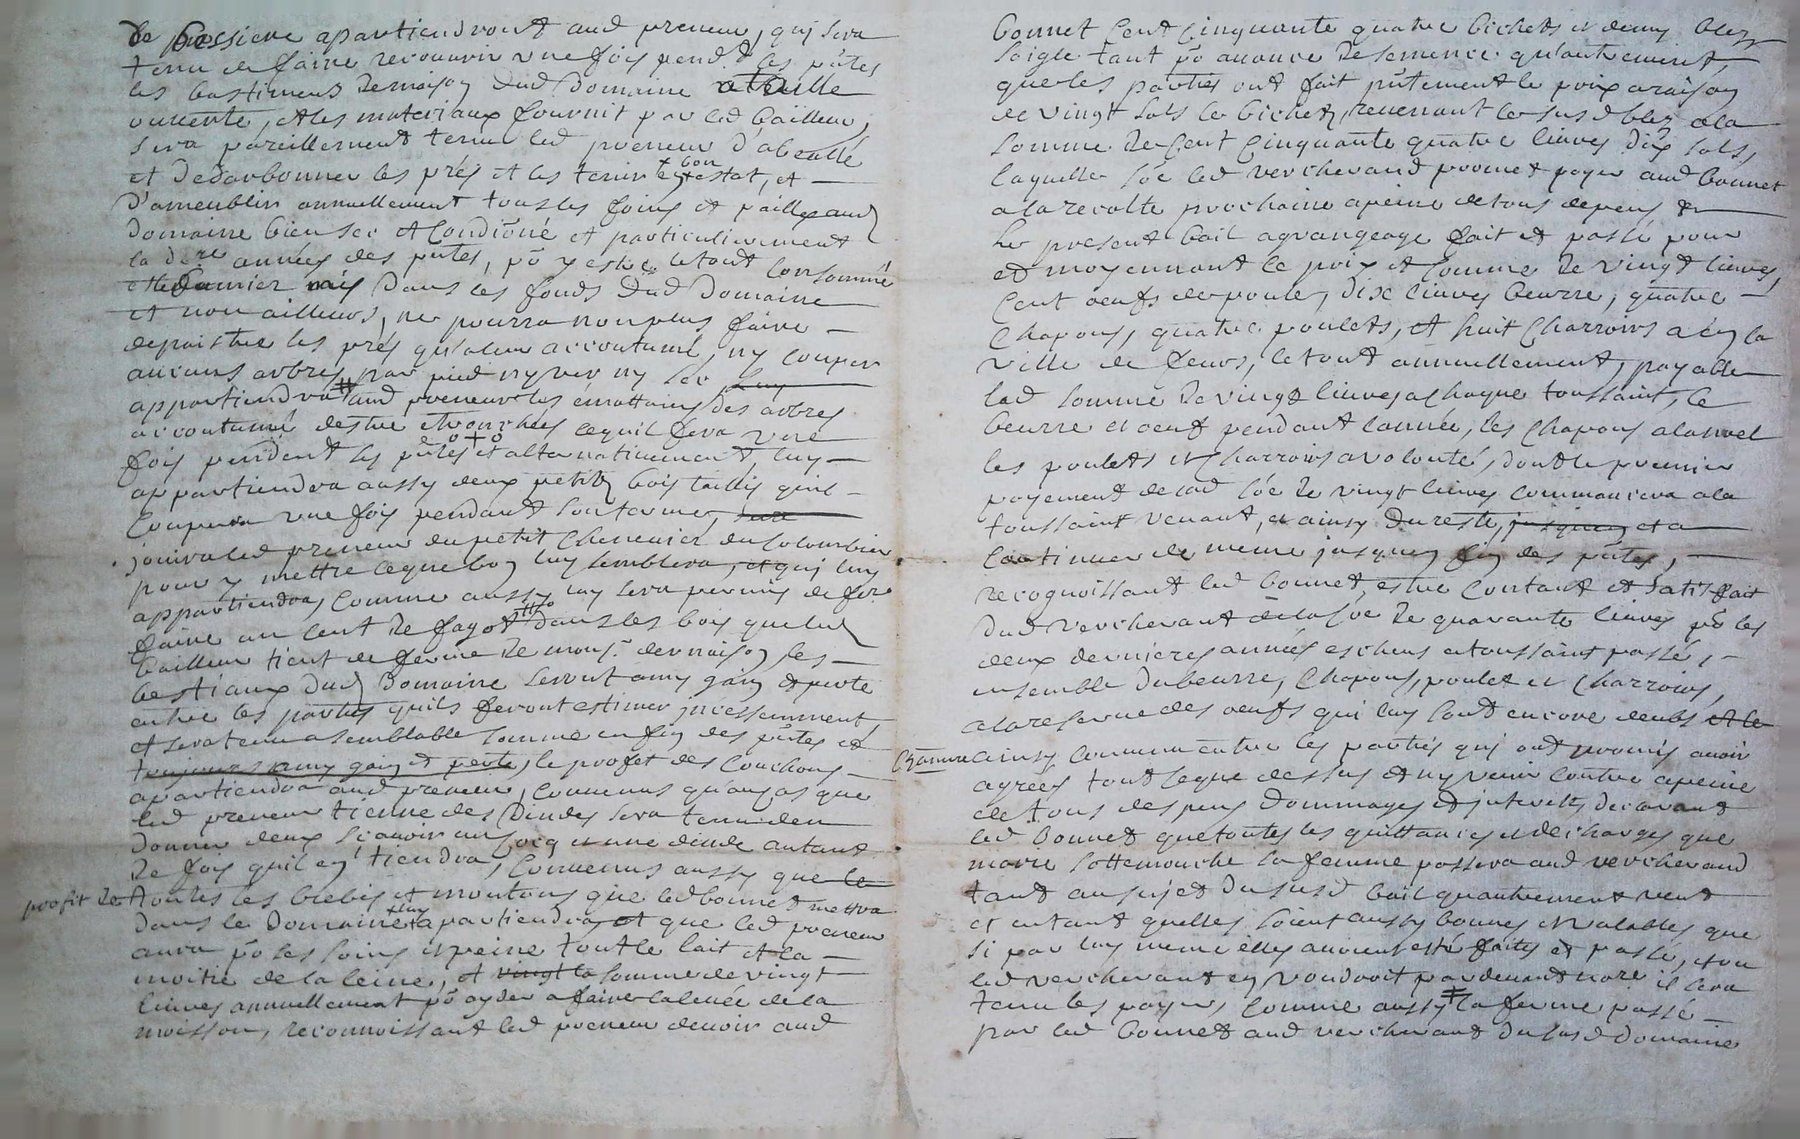 de apartiendront aud preneur, qui sera
tenu de faire recouvrir une fois pend.t les pñtes
les bastimens de maison dud Domaine a taille
ouuerte, et les materiaux fournit par led bailleur,
sera pareillement tenu led preneur d'abeallé
et dedarbonner les prés et les tenir en bon estat, et
d'ameublir annuellement tous les foins et pailles aud
domaine bien sec et Condiõné et particulierement
la d.re année des pñtes, põ y estre le tout Consommé
dans les fonds dud Domaine
et non ailleurs, ne pourra non plus faire
depaistre les prés qu'a leur accoutumé, ny couper
aucuns arbres par pied ny ver ny sec
appartiendra # aud preneur les émottains des arbres
accoutumé destre etronchés ce quil fera une
fois pendent les pñtes et alternativement luy
appartiendra aussy deux petits bois taillis quil
coupera une fois pendant son terme,
jouira led preneur du petit chenevier du colombier
pour y mettre ce que bon luy semblera, et qui luy
appartiendra, comme aussy luy sera permis de
faire un cent de fagot dans les bois que led
bailleur tient de ferme de mons.r dernaison, les
bestiaux dud Domaine seront amy gain et perte
entre les parties quils feront estimer jncessemment
et sera tenu a semblable somme en fin des pñtes et
toujours a my gain et perte, le profet des Couchons
apartiendra aud preneur, Convenus qu'au cas que
led preneur tienne des Dindes sera tenu den
donner deux sçavoir un Cocq et une dinde autant
de fois quil en tiendra, Convenus aussy que le
profit de toutes les brebis et moutons que led bonnet mettra
dans le Domaine luy apartiendra, et que led preneur
aura põ ses soins et peine tout le lait et la
moitié de la leine, et vingt la somme de vingt
livres annuellement põ ayder a faire la levée de la
moisson, reconnoissant led preneur devoir aud
bonnet Cent Cinquante quatre bichets et demy bled
soigle tant põ avance de semence qu'autrement,
que les parties ont fait pñtement le prix a raison
de vingt sols le bichet, revenant le susd bled a la
somme de Cent Cinquante quatre livres dix sols,
laquelle sõe led verchevand promet payer aud bonnet
a la recolte prochaine apeine de tous depens, &
Le present bail agrangeage fait et passé pour
et moyennant le prix et somme de vingt livres,
Cent oeufs de poule, dix livres beurre, quatre
Chapons, quatre poulets, et huit Charrois a en la
ville de feurs, le tout annuellement, payable
lad somme de vingt livres a chaque toussaint, le
beurre et oeuf pendant l'année, les Chapons a la noel
les poulets et Charrois a volonté, dont le premier
payement de lad sõe de vingt livres commancera a la
toussaint venant, et ainsy du reste, jusques et a
Continuer de meme jusques fin des pñtes,
recognoissant led bonnet, estre Contant et satisfait
dud verchevant de la sõe de quarante livres põ les
deux dernieres années escheus a toussaint passé,
ensemble du beurre, Chapons, poulet et Charrois,
a la reserve des oeufs qui luy sont encore deubs et le
Chanvre ainsy Convenu entre les parties qui ont promis avoir
agrées tout le que dessus et ny venir contre apeine
de tous despens dommages et jnterests, declarant
led Bonnet que toutes les quittances et decharges que
marie sottemouche sa femme passera aud verchevand
tant au sujet du susd bail quautrement veut
et entant quelles soient aussy bonnes et valables que
si par luy meme elles avoient esté faites et passé, et ou
led verchevant en voudroit pardevant noré il sera
tenu les payer, Comme aussy # la ferme passé
par led bonnet aud verchevant du susd domaine